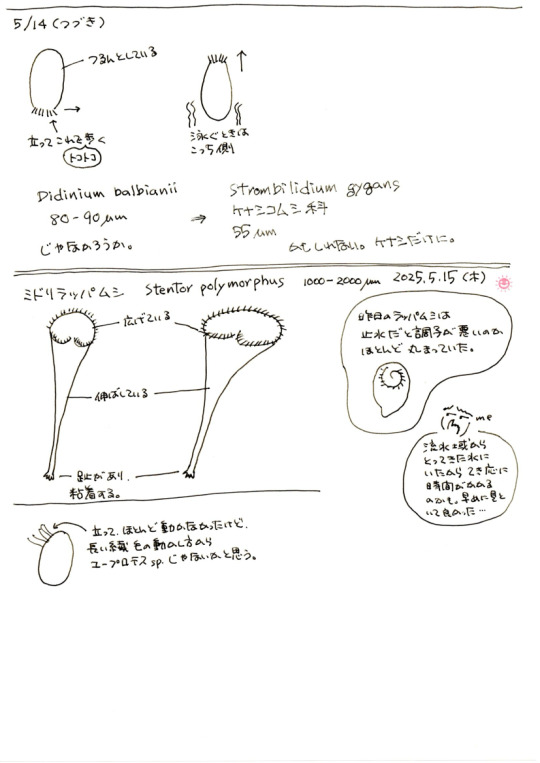 5/14(つづき)
つるんとしている
立ってこれで歩く
トコトコ
泳ぐときは
こっち側
Didinium balbianii
80-90μm
じゃなかろうか。
⇒
Strombilidium gygans
ケナシコムシ科
55μm
かもしれない。ケナシだけに。
ミドリラッパムシ Stentor polymorphus 1000-2000μm 2025.5.15(木)
広げている
伸ばしている
足止があり、
粘着する。
昨日のラッパムシは
止水だと調子が悪いのか
ほとんど丸まっていた。
me
流水域から
とってきた水に
いたから てき応に
時間がかかる
のかも。早めに見と
いて良かった…
立って、ほとんど動かなかったけど、
長い繊毛の動かし方から
ユープロテスsp.じゃないかと思う。